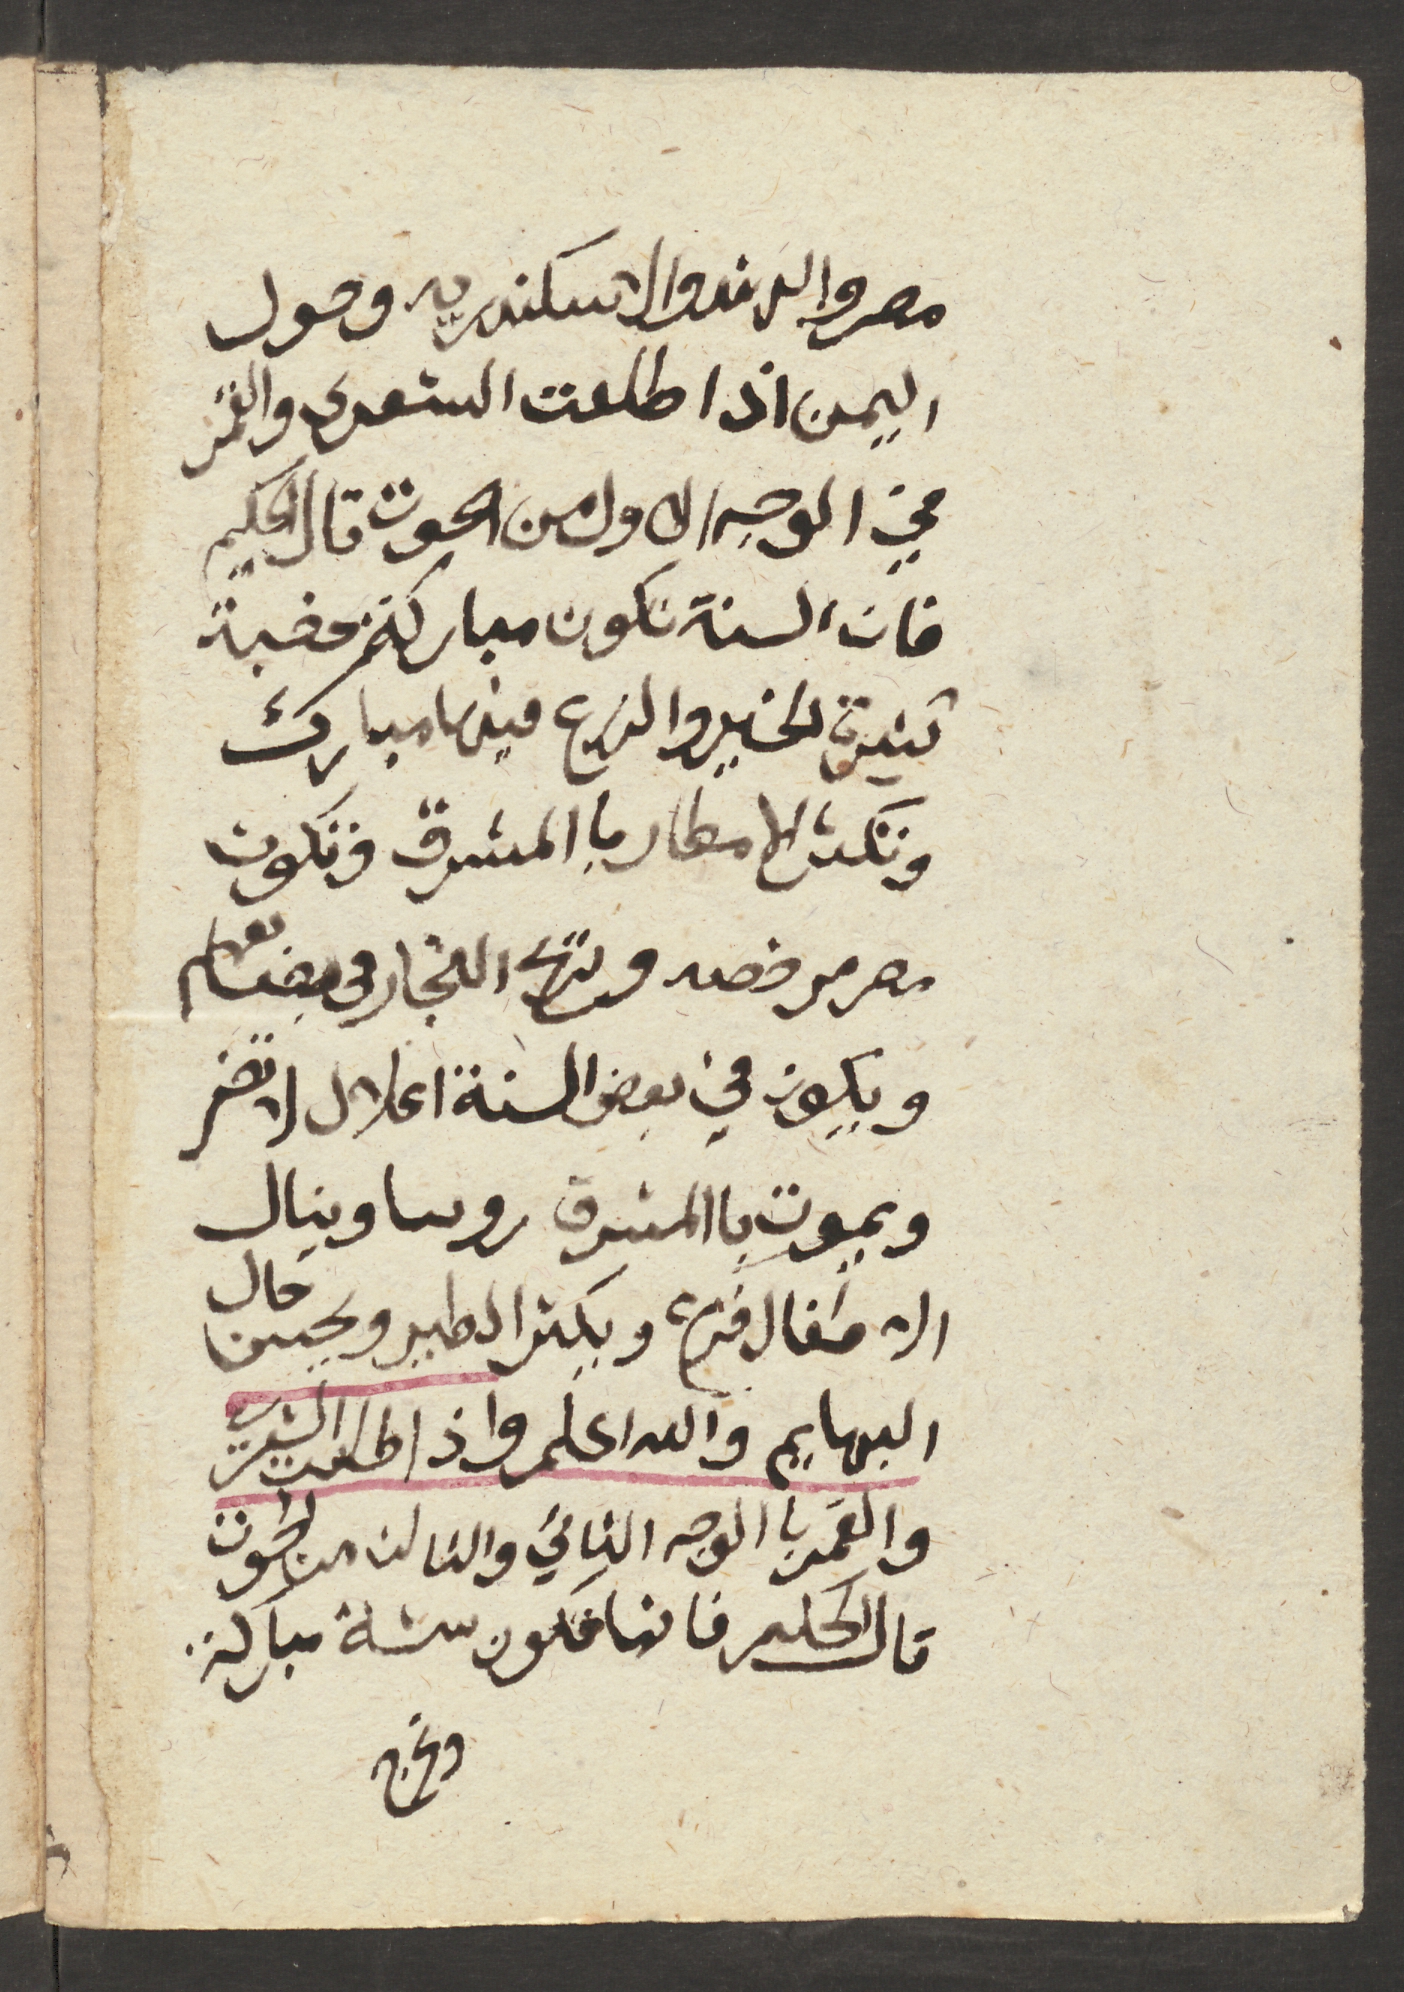 مصر والهند والاسكندريه وحول
اليمن اذا طلعت الشعرى والقمر
في الوجه الاول من الحوت قال الحكيم
فان السنة تكون مباركة مخصبة
كثيرة الخير والزرع فيها مبارك
وتكثر الامطار با المشرق وتكون
مصر مرخصه وتربح التجار في بضايعهم
ويكون في بعض السنة اعلال لا تضر
ويموت با المشرق روسا وينال
الاطفال فزع ويكثر الطير ويحسن حال
البهايم والله اعلم واذا طلعت الشعرى
والقمر با الوجه الثاني والثالث من الحوت
قال الحكيم فانها تكون سنة مباركة
وتخرج